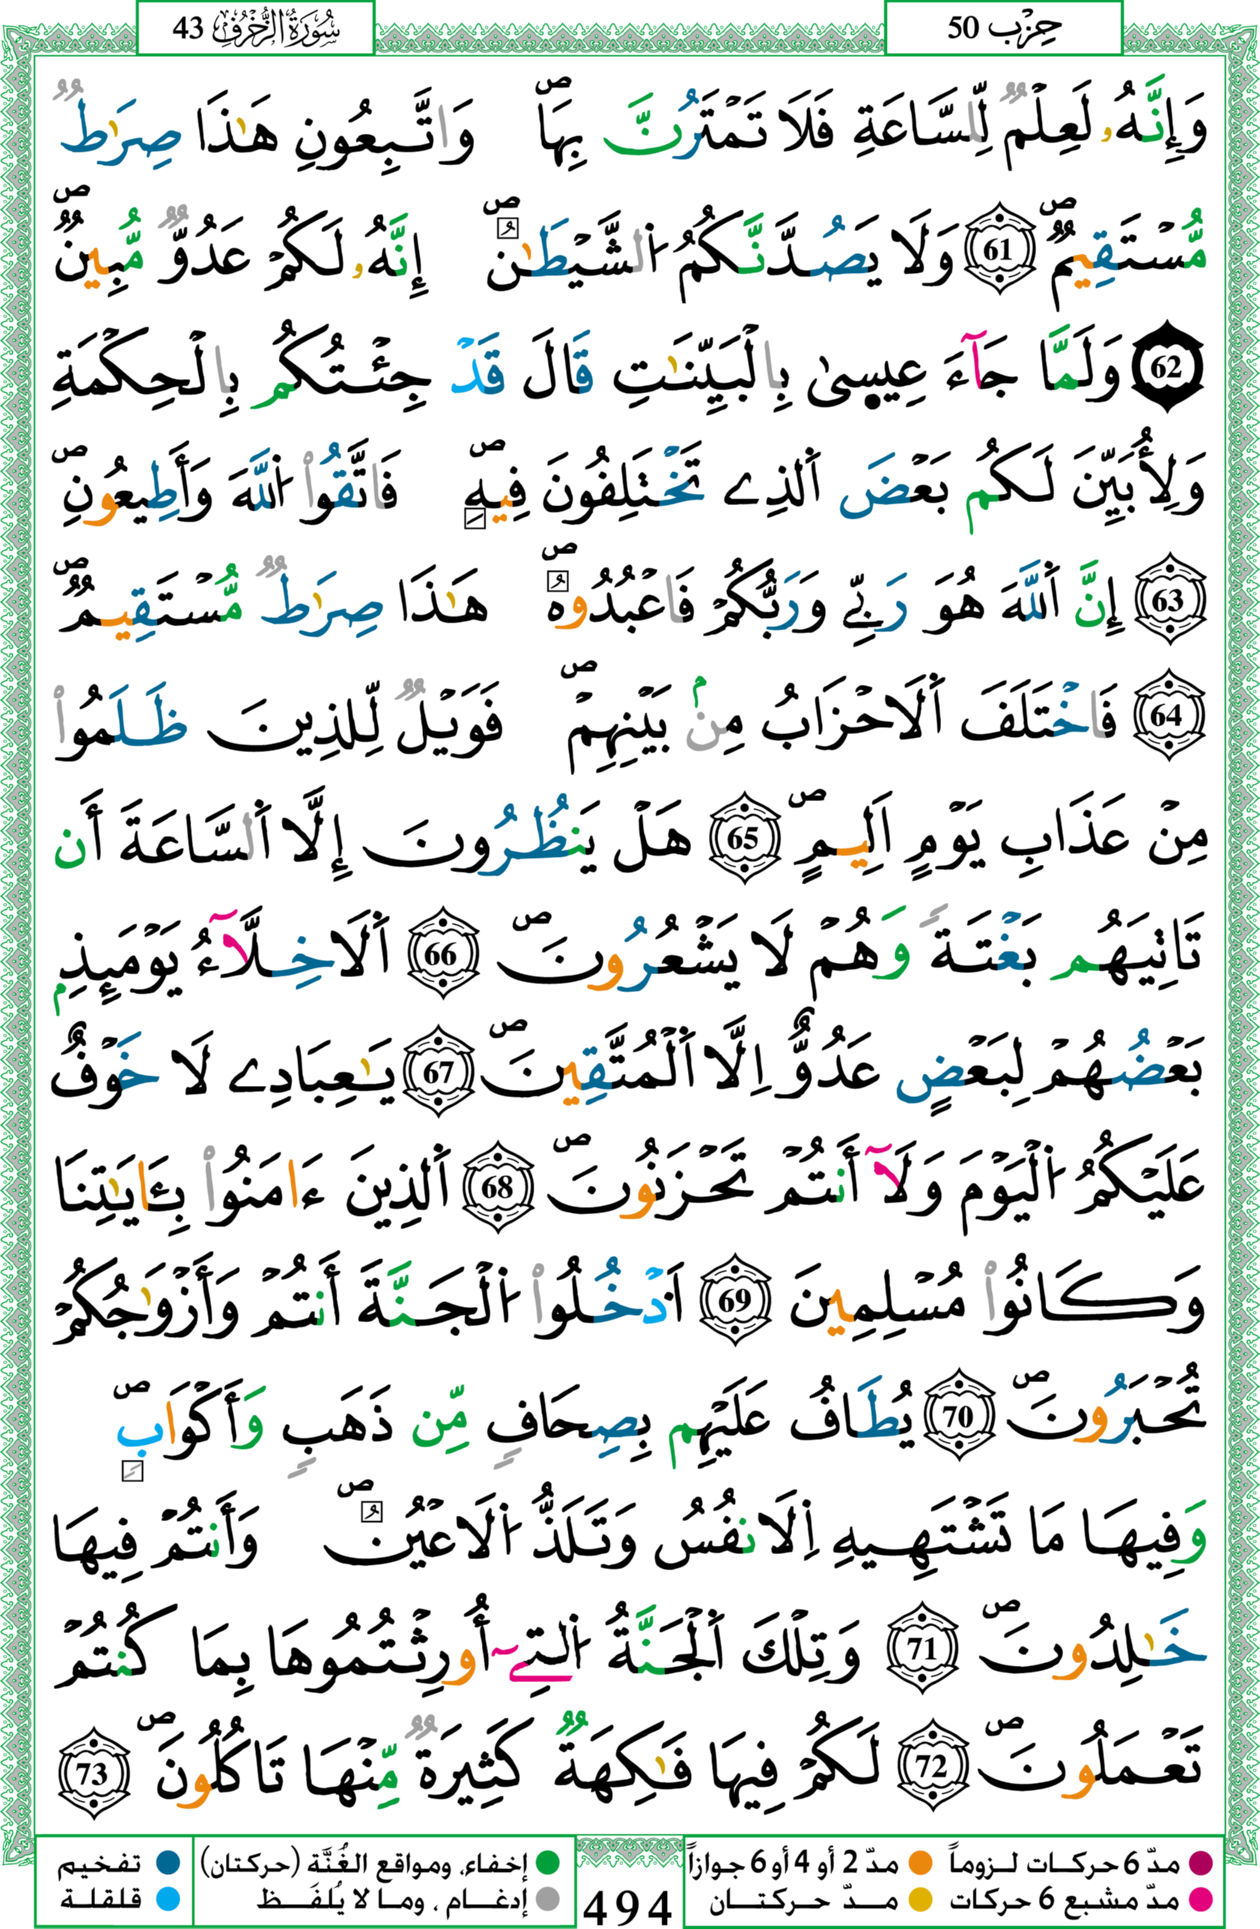 حِزْب 50
سُورَةُ الزُّخْرُفِ 43
وَإِنَّهُۥ لَعِلْمٌ لِّلسَّاعَةِ فَلَا تَمْتَرُنَّ بِهَاۖ وَاتَّبِعُونِ هَٰذَا صِرَٰطٌ
مُّسْتَقِيمٌۖ 61 وَلَا يَصُدَّنَّكُمُ اُلشَّيْطَٰنُۖ إِنَّهُۥ لَكُمْ عَدُوٌّ مُّبِينٌۖ
62 وَلَمَّا جَآءَ عِيسٜىٰ بِالْبَيِّنَٰتِ قَالَ قَدْ جِئْتُكُم بِالْحِكْمَةِ
وَلِأُبَيِّنَ لَكُم بَعْضَ اَلذِے تَخْتَلِفُونَ فِيهِۖ فَاتَّقُوا۟ اُللَّهَ وَأَطِيعُونِۖ
63 إِنَّ اَللَّهَ هُوَ رَبِّے وَرَبُّكُمْ فَاعْبُدُوهُۖ هَٰذَا صِرَٰطٌ مُّسْتَقِيمٌۖ
64 فَاخْتَلَفَ اَلَاحْزَابُ مِنۢ بَيْنِهِمْۖ فَوَيْلٌ لِّلذِينَ ظَلَمُوا۟
مِنْ عَذَابِ يَوْمٍ اَلِيمٍۖ 65 هَلْ يَنظُرُونَ إِلَّا اَلسَّاعَةَ أَن
تَاتِيَهُم بَغْتَةً وَهُمْ لَا يَشْعُرُونَۖ 66 اَلَاخِلَّآءُ يَوْمَئِذِۢ
بَعْضُهُمْ لِبَعْضٍ عَدُوٌّ اِلَّا اَلْمُتَّقِينَۖ 67 يَٰعِبَادِے لَا خَوْفٌ
عَلَيْكُمُ اُلْيَوْمَ وَلَآ أَنتُمْ تَحْزَنُونَۖ 68 اَلذِينَ ءَامَنُوا۟ بِـَٔايَٰتِنَا
وَكَانُوا۟ مُسْلِمِينَ 69 اَدْخُلُوا۟ اُلْجَنَّةَ أَنتُمْ وَأَزْوَٰجُكُمْ
تُحْبَرُونَۖ 70 يُطَافُ عَلَيْهِم بِصِحَافٍ مِّن ذَهَبٍ وَأَكْوَابٍۖ
وَفِيهَا مَا تَشْتَهِيهِ اِلَانفُسُ وَتَلَذُّ اُلَاعْيُنُۖ وَأَنتُمْ فِيهَا
خَٰلِدُونَۖ 71 وَتِلْكَ اَلْجَنَّةُ اُلتِےٓ أُورِثْتُمُوهَا بِمَا كُنتُمْ
تَعْمَلُونَۖ 72 لَكُمْ فِيهَا فَٰكِهَةٌ كَثِيرَةٌ مِّنْهَا تَاكُلُونَۖ 73
مدّ 6 حركات لـزوماً
مدّ 2 أو 4 أو 6 جوازاً
إخفاء، ومواقع الغُنَّة (حركتان)
تفخيم
مدّ مشبع 6 حركات
مــدّ حركتــان
إدغـام ، ومـا لا يُلفَــظ
قلقلة
494